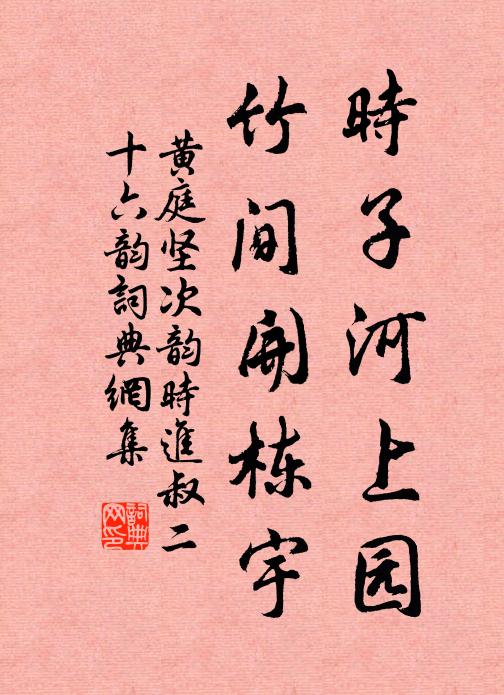 時子河上园
竹间開栋宇
黄庭坚次韵時進叔二
十六韵詞典網集
詞典
网印